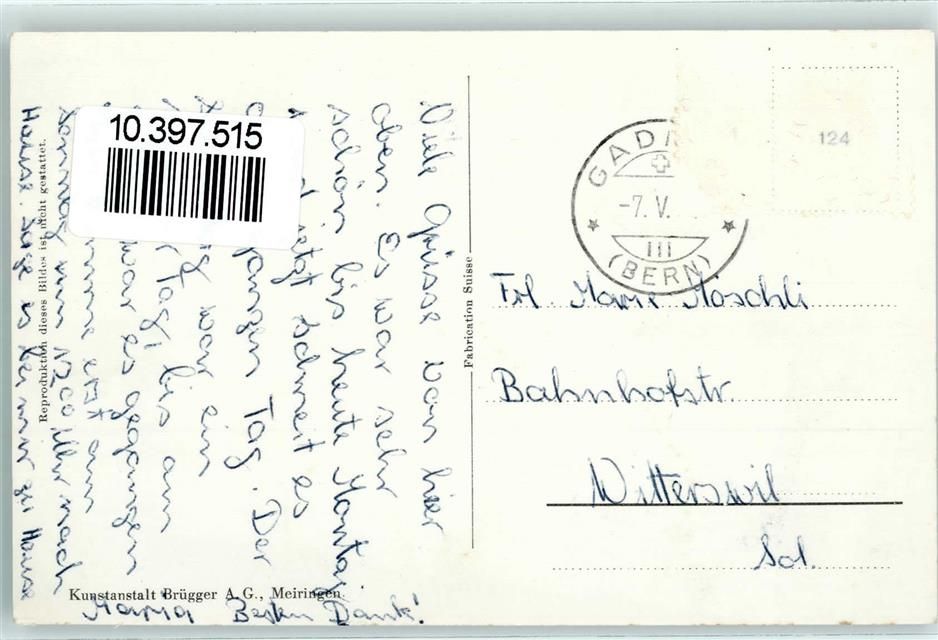 10.397.515
124
GAD
-7. V.
III
(BERN)
Frl. Marie Möschli
Bahnhofstr.
Witterswil
Sol.
Fabrication Suisse
Reproduktion dieses Bildes ist nicht gestattet.
Kunstanstalt Brügger A. G., Meiringen.
Viele Grüsse von hier
oben. Es war sehr
schön bis heute Montag
jetzt schneit es
ganzen Tag. Der
war ein
Tag! bis am
war es gegangen
erst am
Sonntag um 12.00 Uhr nach
Hause. Sage es bei mir zu Hause
Besten Dank!